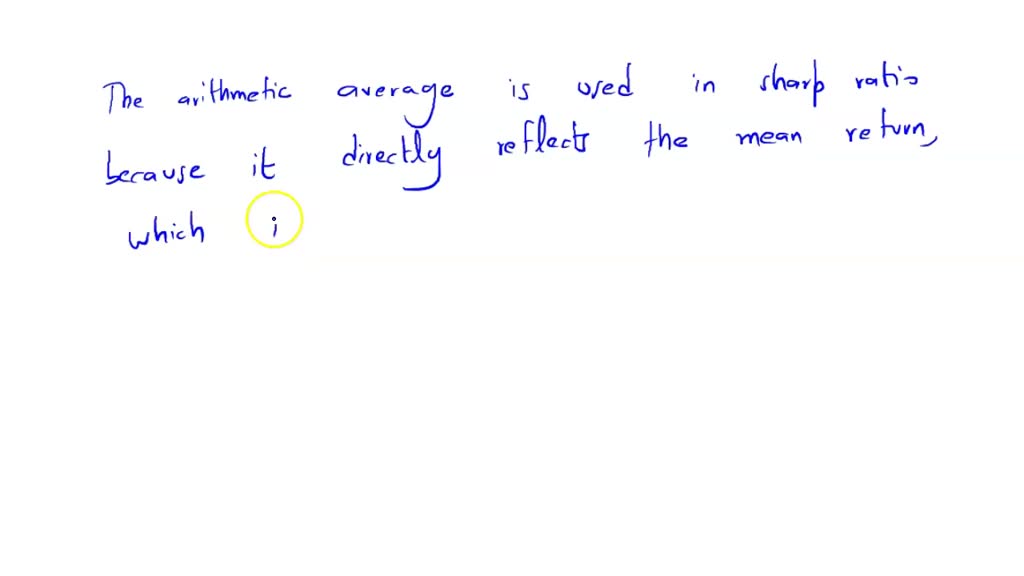 The arithmetic average is used in sharp ratio
because it directly reflects the mean return,
which i